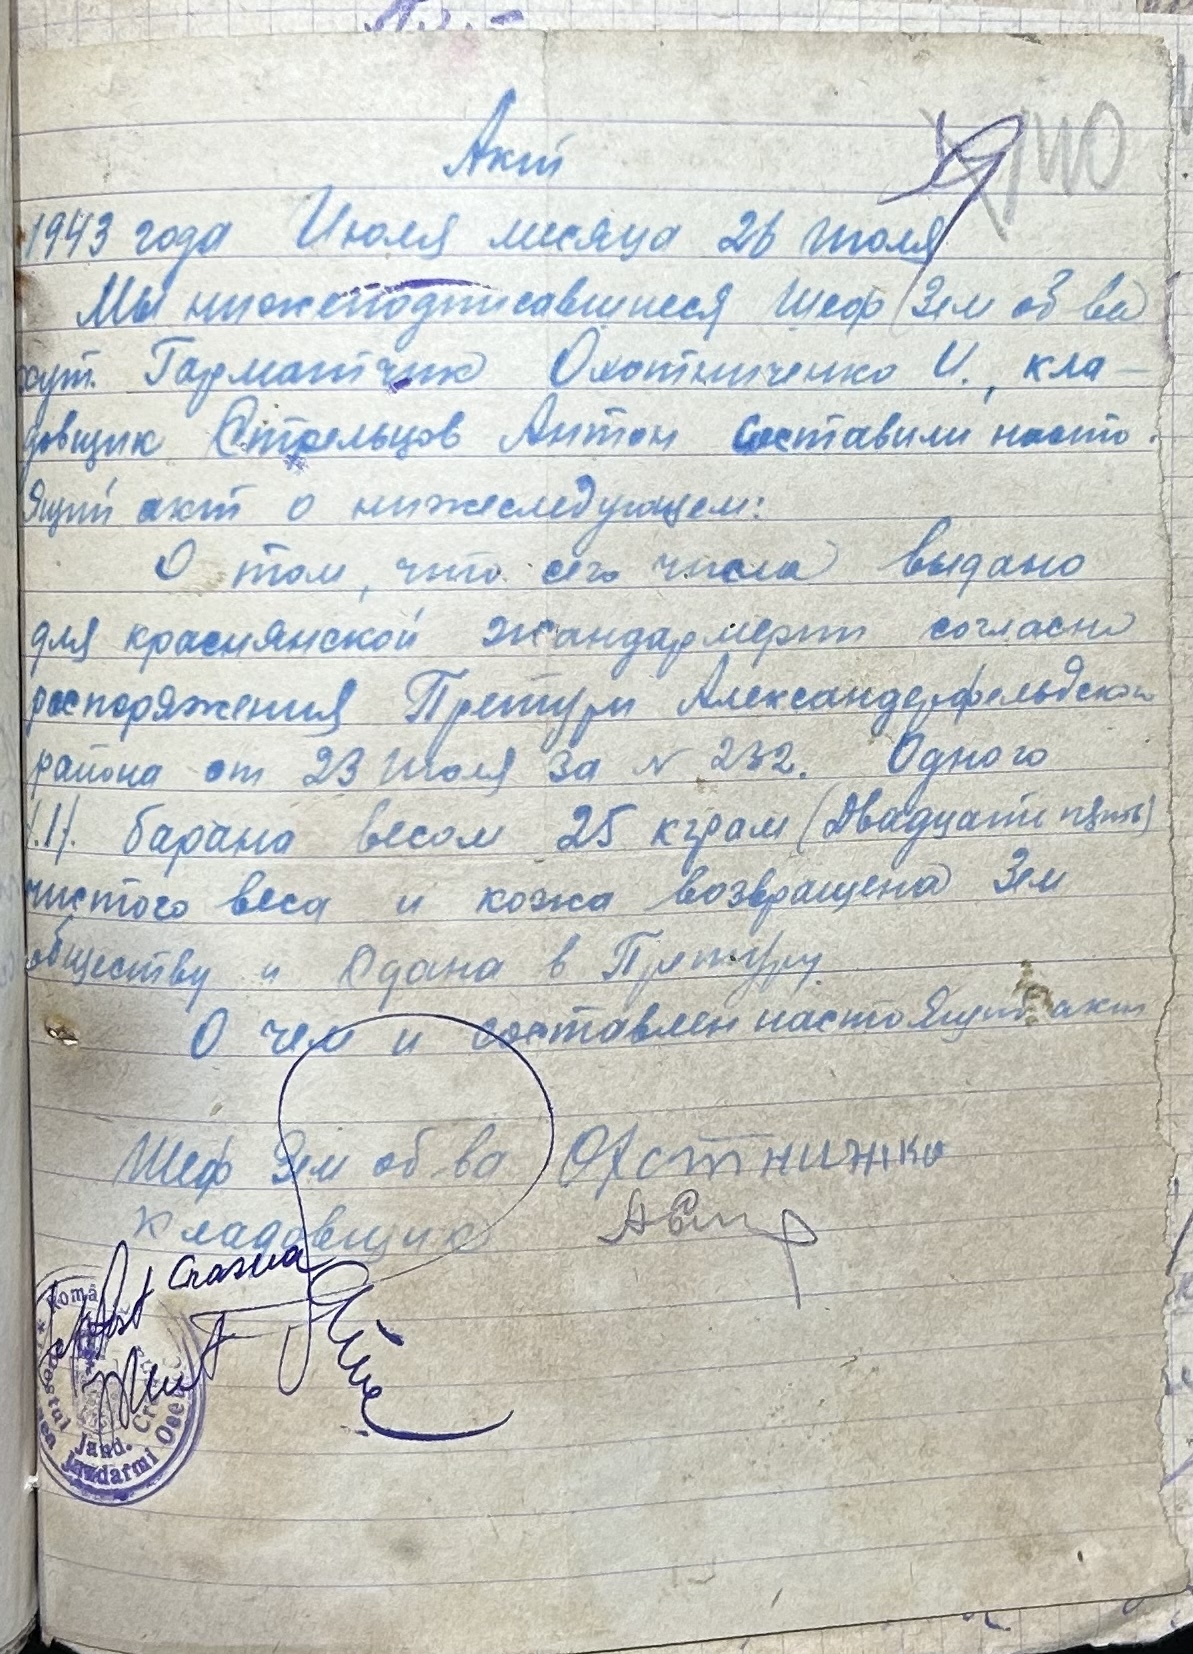 Акт
110
1943 года Июля месяца 26 июля
Мы нижеподписавшиеся Шеф Зем об ва
хут. Гарматчик Охотниченко И., кла-
довщик Стрельцов Антон составили насто-
ящий акт о нижеследующем:
О том, что сего числа выдано
для краснянской жандармерии согласно
распоряжения Претури Александерфельдского
района от 23 Июля за № 232. Одного
/.1/. барана весом 25 кграм (Двадцати пять)
чистого веса и кожа возвращена Зем
обществу и Сдана в Претуру
О чем и составлен настоящий акт
Шеф Зем об ва Охотнинко
Кладовщик АСтр
Post Crasna
Româ
Jand. Cr
Jandarmi